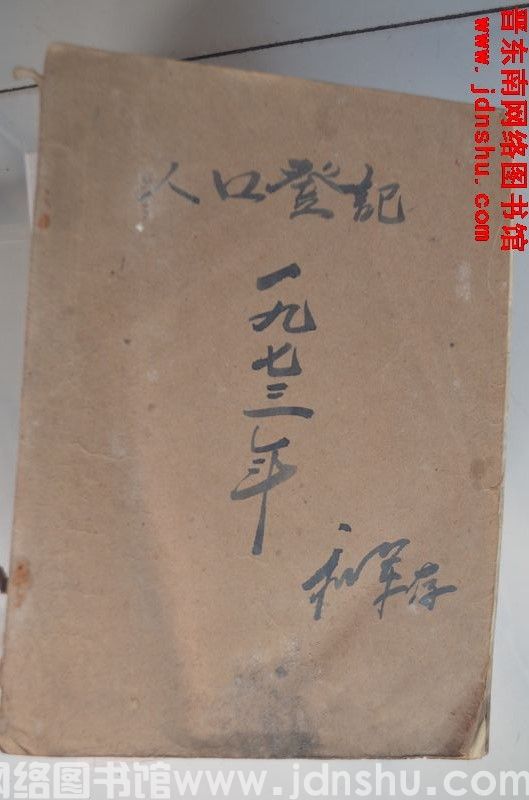 人口登記
一九七三年
和军存
晋东南网络图书馆
www.jdnshu.com
网络图书馆www.jdnshu.com